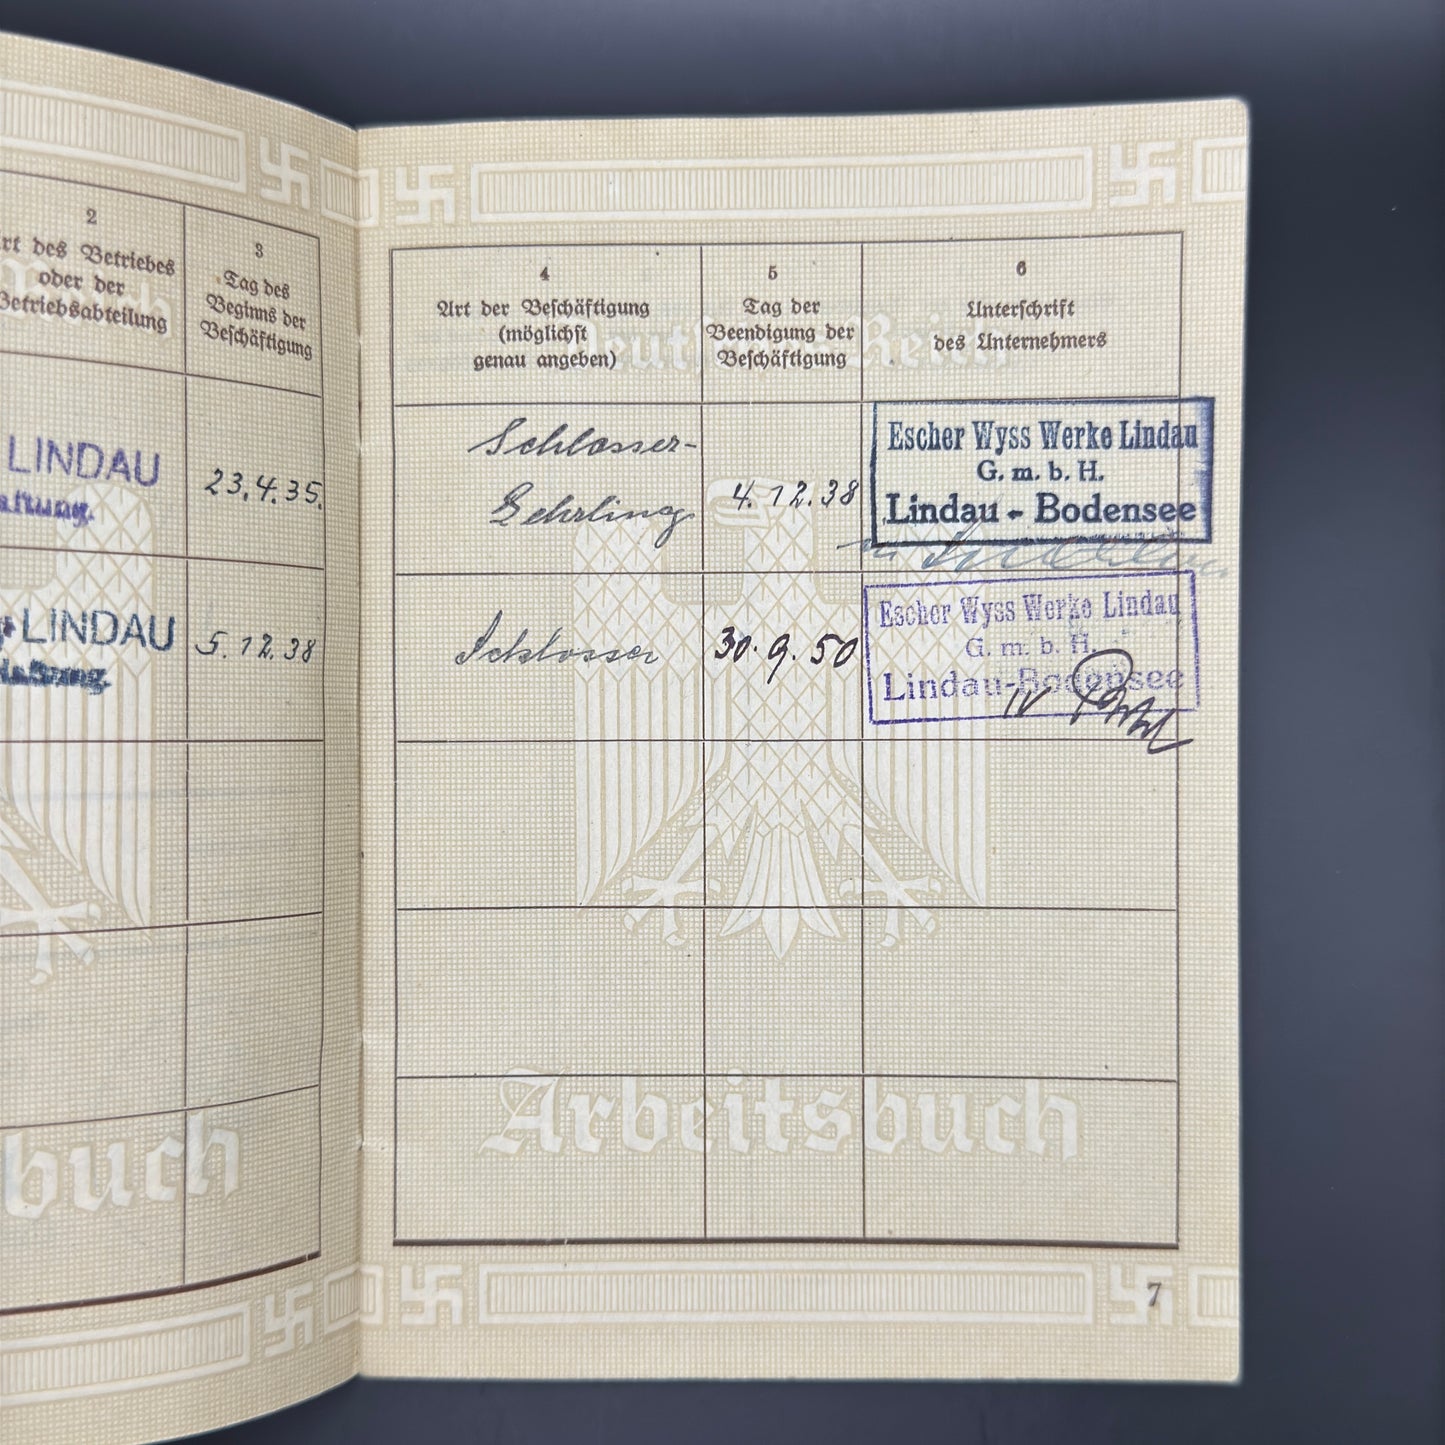 2
Art des Betriebes
oder der
Betriebsabteilung
3
Tag des
Beginns der
Beschäftigung
LINDAU
23.4.35.
LINDAU
5.12.38
buch
4
Art der Beschäftigung
(möglichst
genau angeben)
5
Tag der
Beendigung der
Beschäftigung
6
Unterschrift
des Unternehmers
Deutsches Reich
Schlosser-
Lehrling
4.12.38
Escher Wyss Werke Lindau
G. m. b. H.
Lindau - Bodensee
Schlosser
30.9.50
Escher Wyss Werke Lindau
G. m. b. H.
Lindau-Bodensee
Arbeitsbuch
7